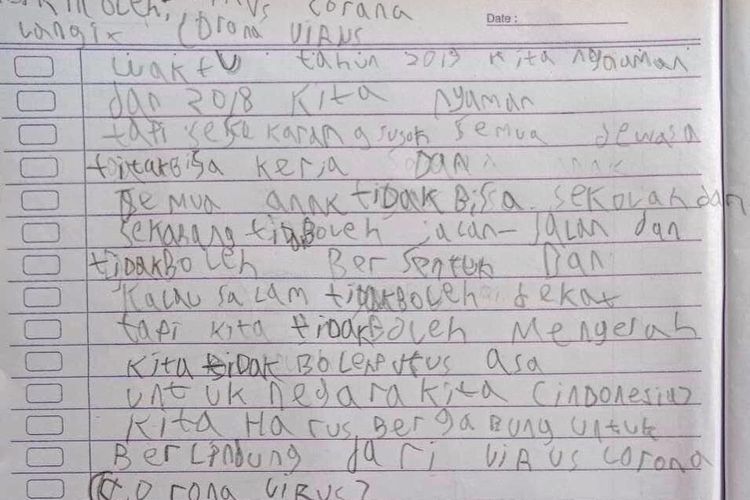 Date :
Corona
Langix (Corona VIRUS
waktu tahun 2019 kita ngyaman
dan 2018 kita nyaman
tapi sesekarang susah semua dewasa
tidakBisa kerja DAN
semua anak tiDAk BiSa sekolah dan
sekarang tidakBoleh jalan-jalan dan
tiDAkBoLeh BerSentuh Dan
Kalau salam tiDAkBOLeh dekat
tapi kita tiDAkBOLeh Mengerah
kita tiDAk BOLeh putus asa
untuk negara kita (inDONesia)
kita HaRus BergaBung untuk
BerLinDung dari ViRus corona
(Corona ViRUS)